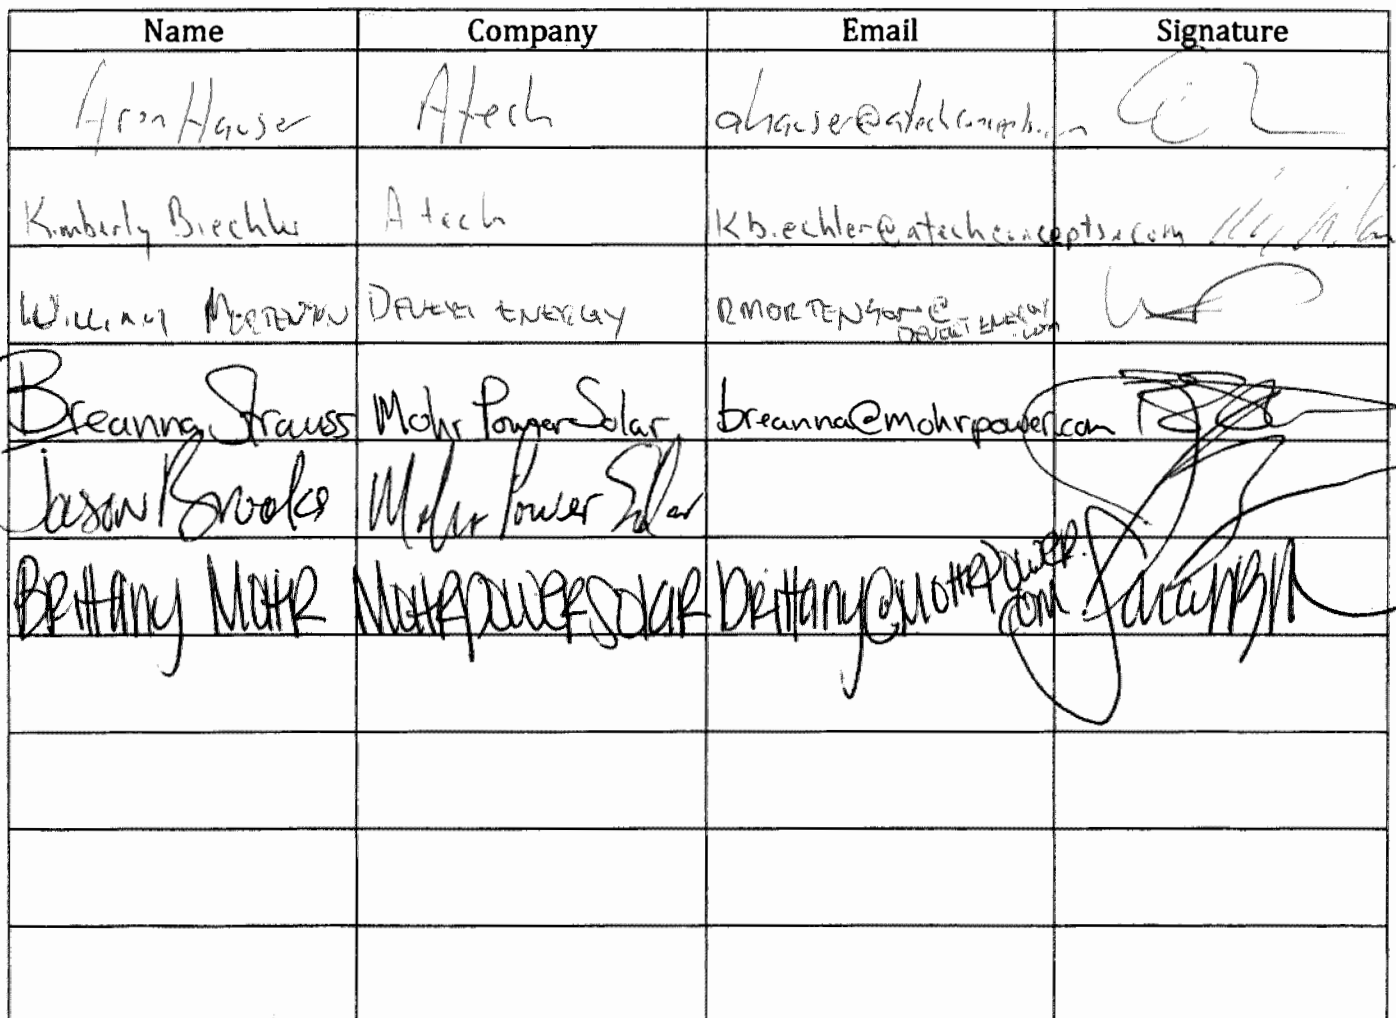 Name Company Email Signature
Aron Hauser Atech ahauser@atechconcepts.com
Kimberly Biechler Atech kbiechler@atechconcepts.com
William Energy
Breanna Strauss Mohr Power Solar breanna@mohrpower.com
Jason Brooks Mohr Power Solar
Brittany Mohr MohrPowerSolar brittany@mohrpower.
com